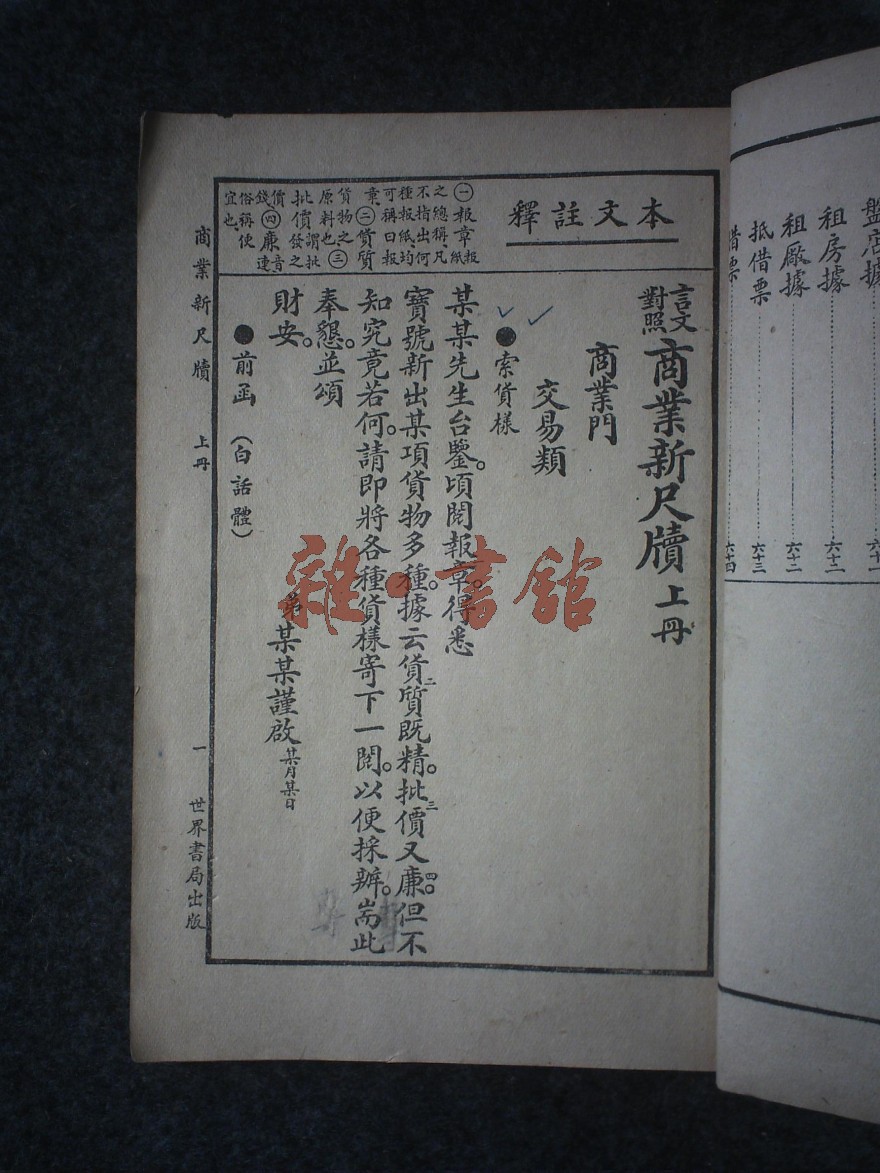 盤店據⋯⋯六十一
租房據⋯⋯六十二
租廠據⋯⋯六十二
抵借票⋯⋯六十三
借票⋯⋯六十四
本文註釋
㊀報章報紙
之總稱、凡
不指出何
種報紙、均
可稱曰報
章㊁貨質
貨物之
原料也、㊂
批價謂批
發之價
錢㊃廉音連
俗稱便
宜也、
言文對照 商業新尺牘 上冊
商業門
交易類
●索貨樣
某某先生台鑒。頃閱報章。得悉
寶號新出某項貨物多種。據云貨質二既精。批價三又廉四。但不
知究竟若何。請即將各種貨樣寄下一閱。以便採辦。耑此
奉懇。並頌
財安。
弟某某謹啟 某月某日
●前函 (白話體)
商業新尺牘 上冊 一 世界書局出版
雜·書館